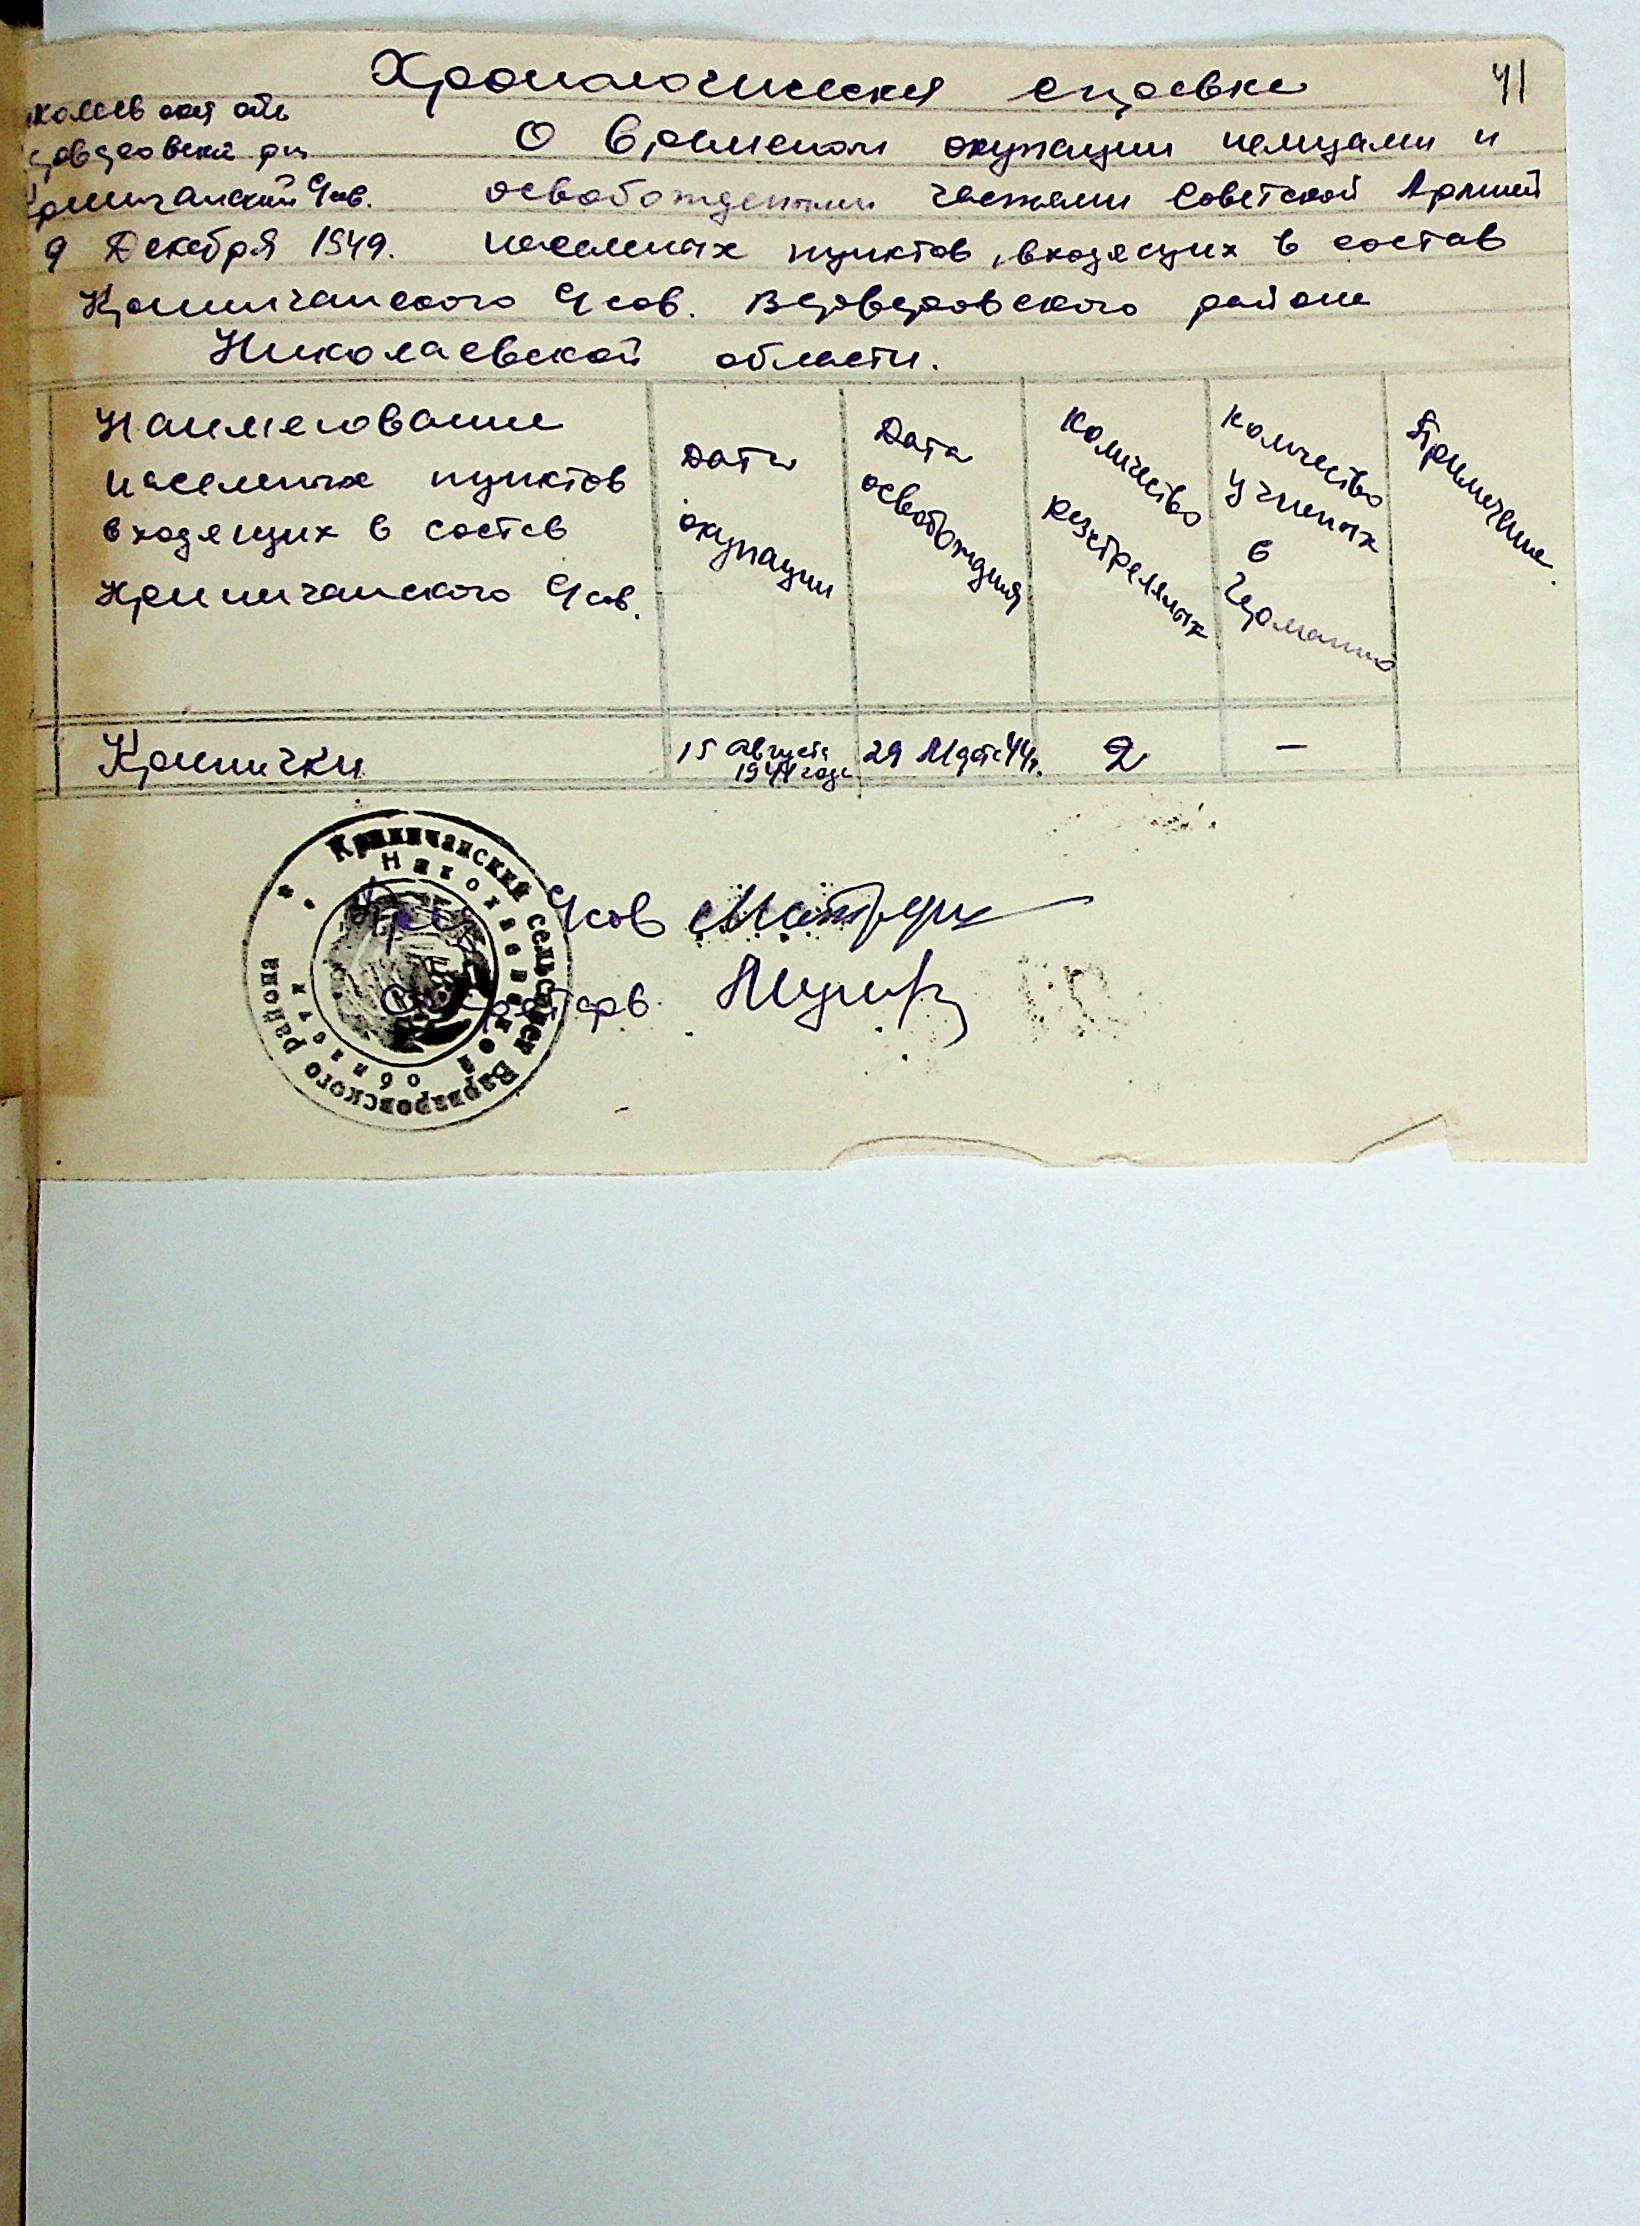 41
Хронологическая справка
николаевская обл
Варваровский р-н
Криничанский с/сов.
9 Декабря 1949.
О временом окупации немцами и
освобождеными частями Советской Армией
населеных пунктов, входящих в состав
Криничанского с/сов. Варваровского района
Николаевской области.
Наименование
населеных пунктов
входящих в состав
Криничанского с/сов.
Дата
окупации
Дата
освобождния
Количество
растреляных
Количество
угнаных
в
Германию
Примечание.
Кринички
15 августа
1941 года
29 Марта 44г.
2
—
Криничанский сельсовет Варваровского района
Николаевской области
Пред с/сов
Секретарь